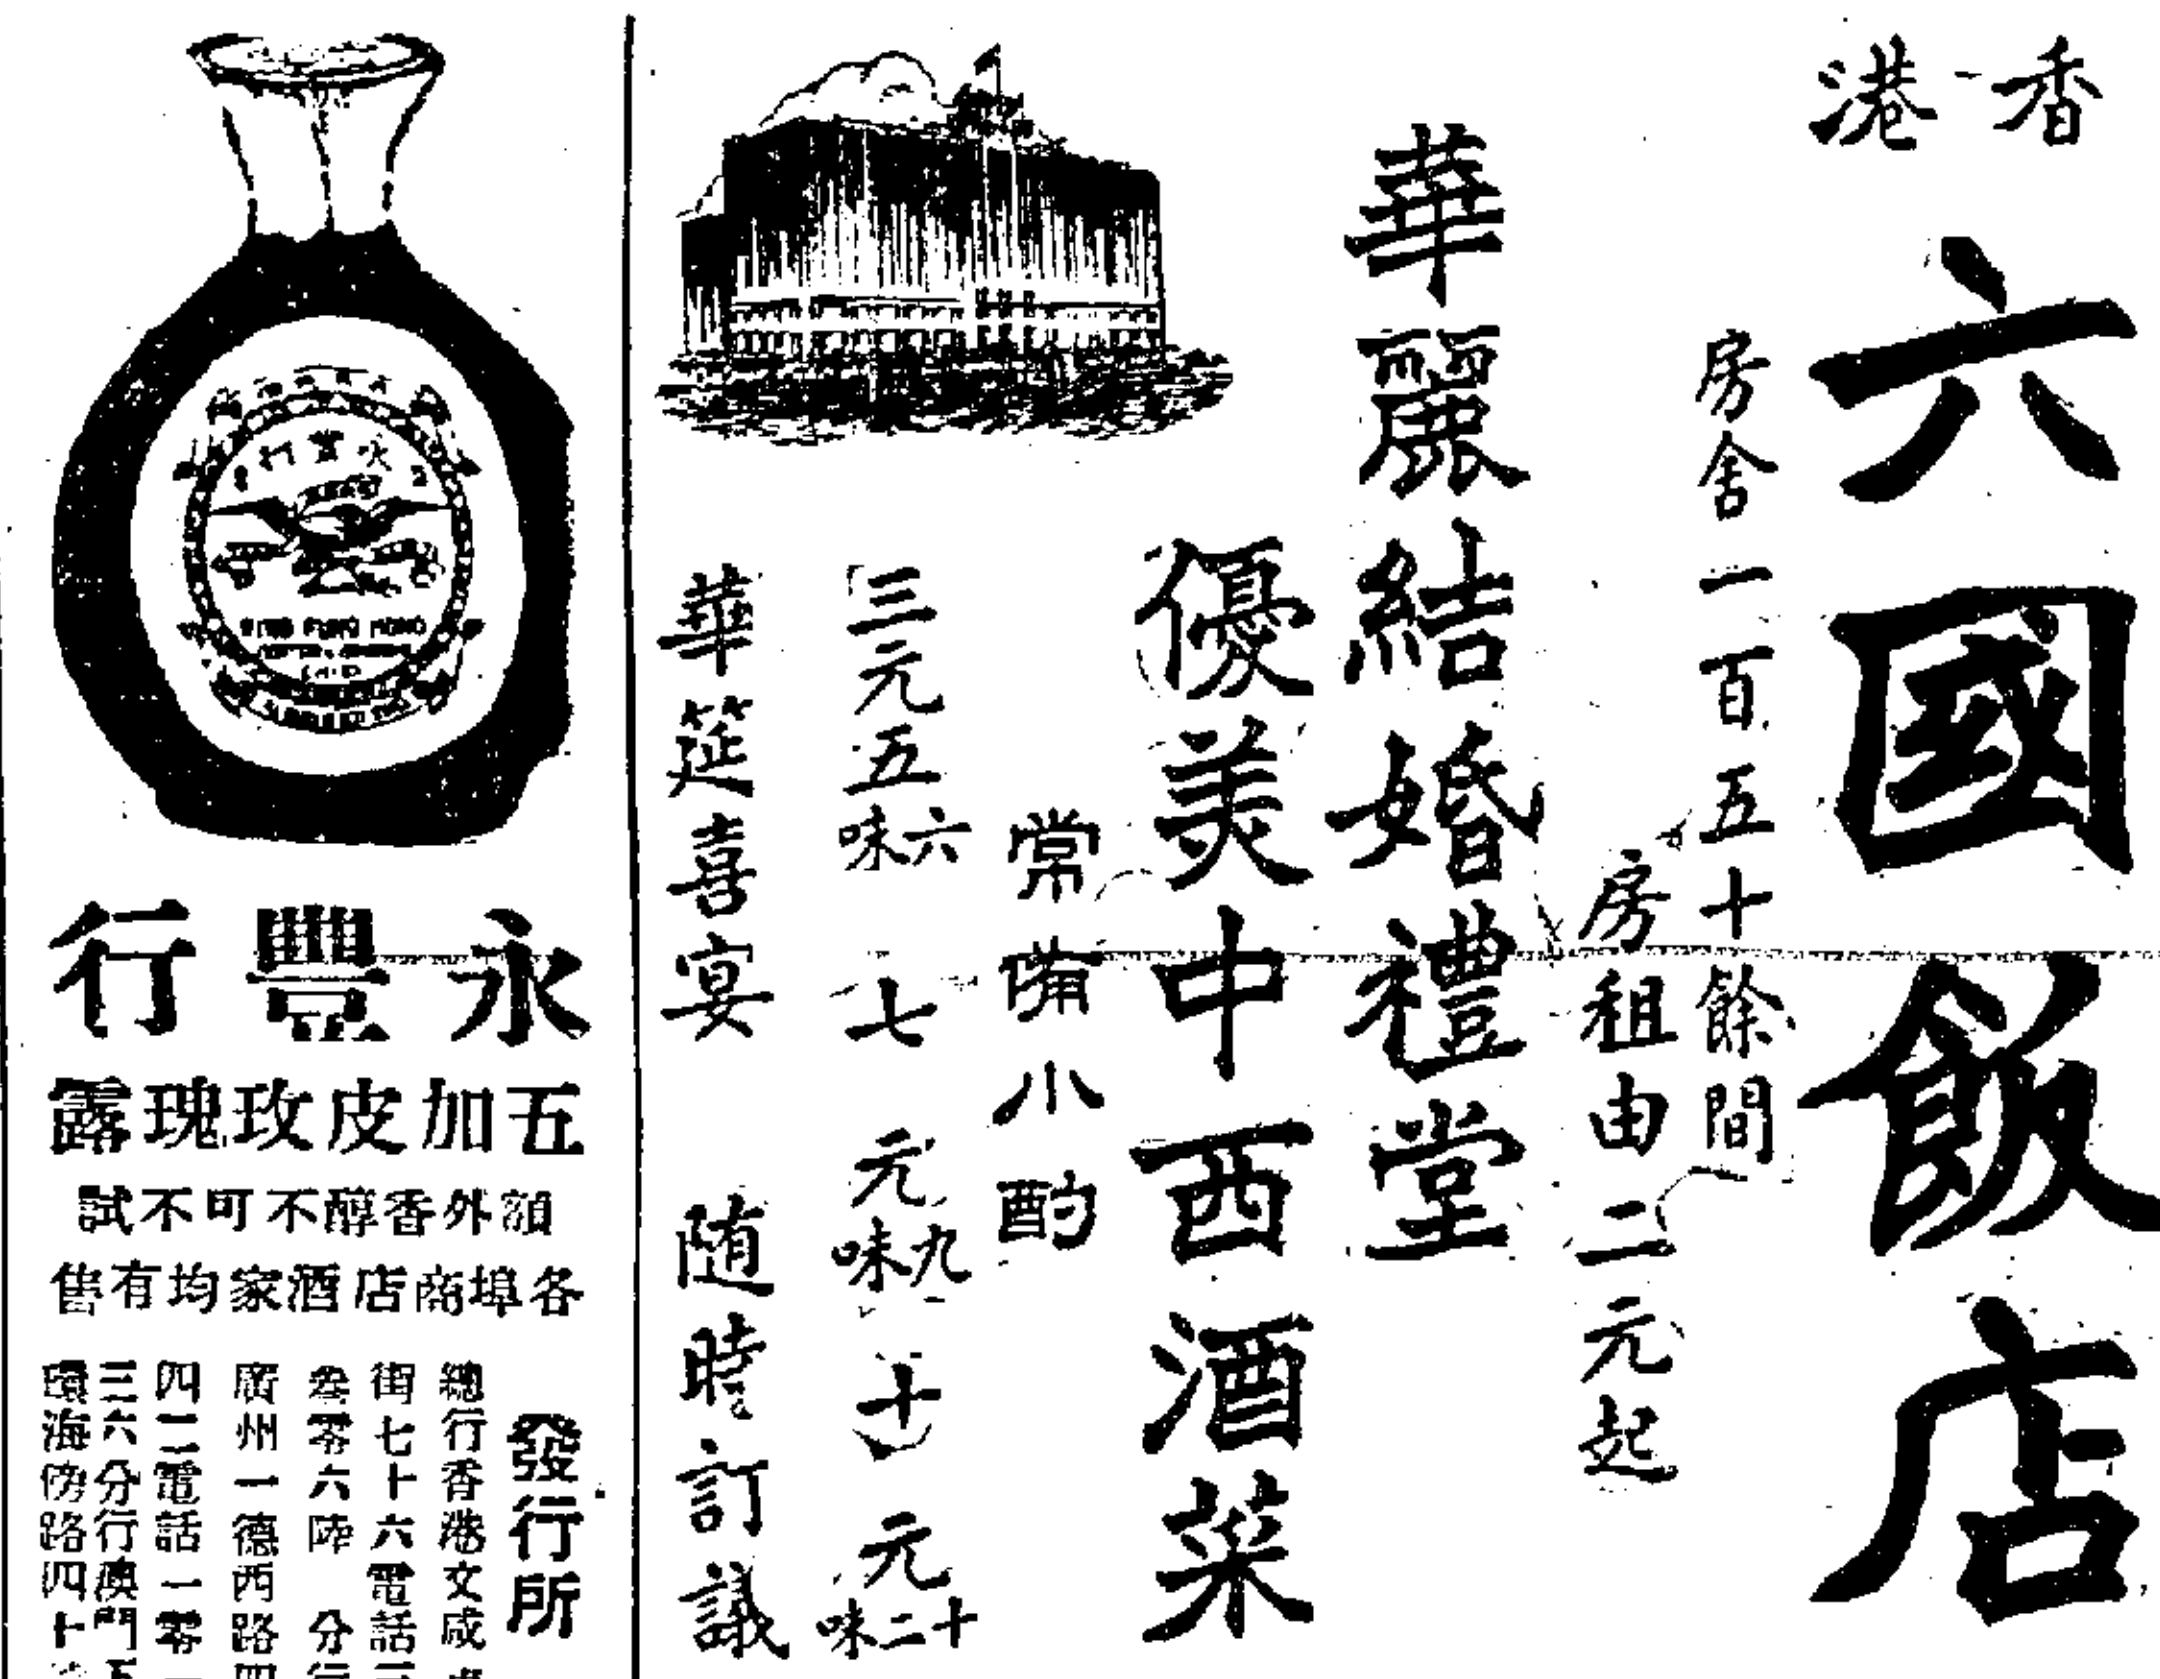 香港
六國飯店
房舍一百五十餘間
房租由二元起
華麗結婚禮堂
優美中西酒菜
常備小酌
三元五六味 七元九味 十元十二味
華筵喜宴 随時訂議
永豐行
五加皮玫瑰露
額外香醇不可不試
各埠商店酒家均有售
發行所
總行香港文咸
街七十六電話
叁零六陸 分行
廣州一德西路四
四二電話一零
三六分行澳門下
環海傍路四十
WING FUNG HONG